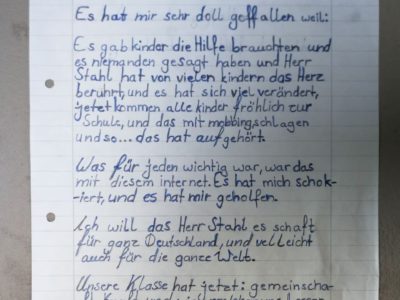 Es hat mir sehr doll geffallen weil:
Es gab kinder die Hilfe brauchten und
es niemanden gesagt haben und Herr
Stahl hat von vielen kindern das Herz
berührt, und es hat sich viel verändert,
jetzt kommen alle kinder fröhlich zur
Schule, und das mit mobbing, schlagen
und so... das hat aufgehört.
Was für jeden wichtig war, war das
mit diesem internet. Es hat mich schok-
iert, und es hat mir geholfen.
Ich will das Herr Stahl es schaft
für ganz Deutschland, und velleicht
auch für die ganze Welt.
Unsere Klasse hat jetzt: gemeinscha-